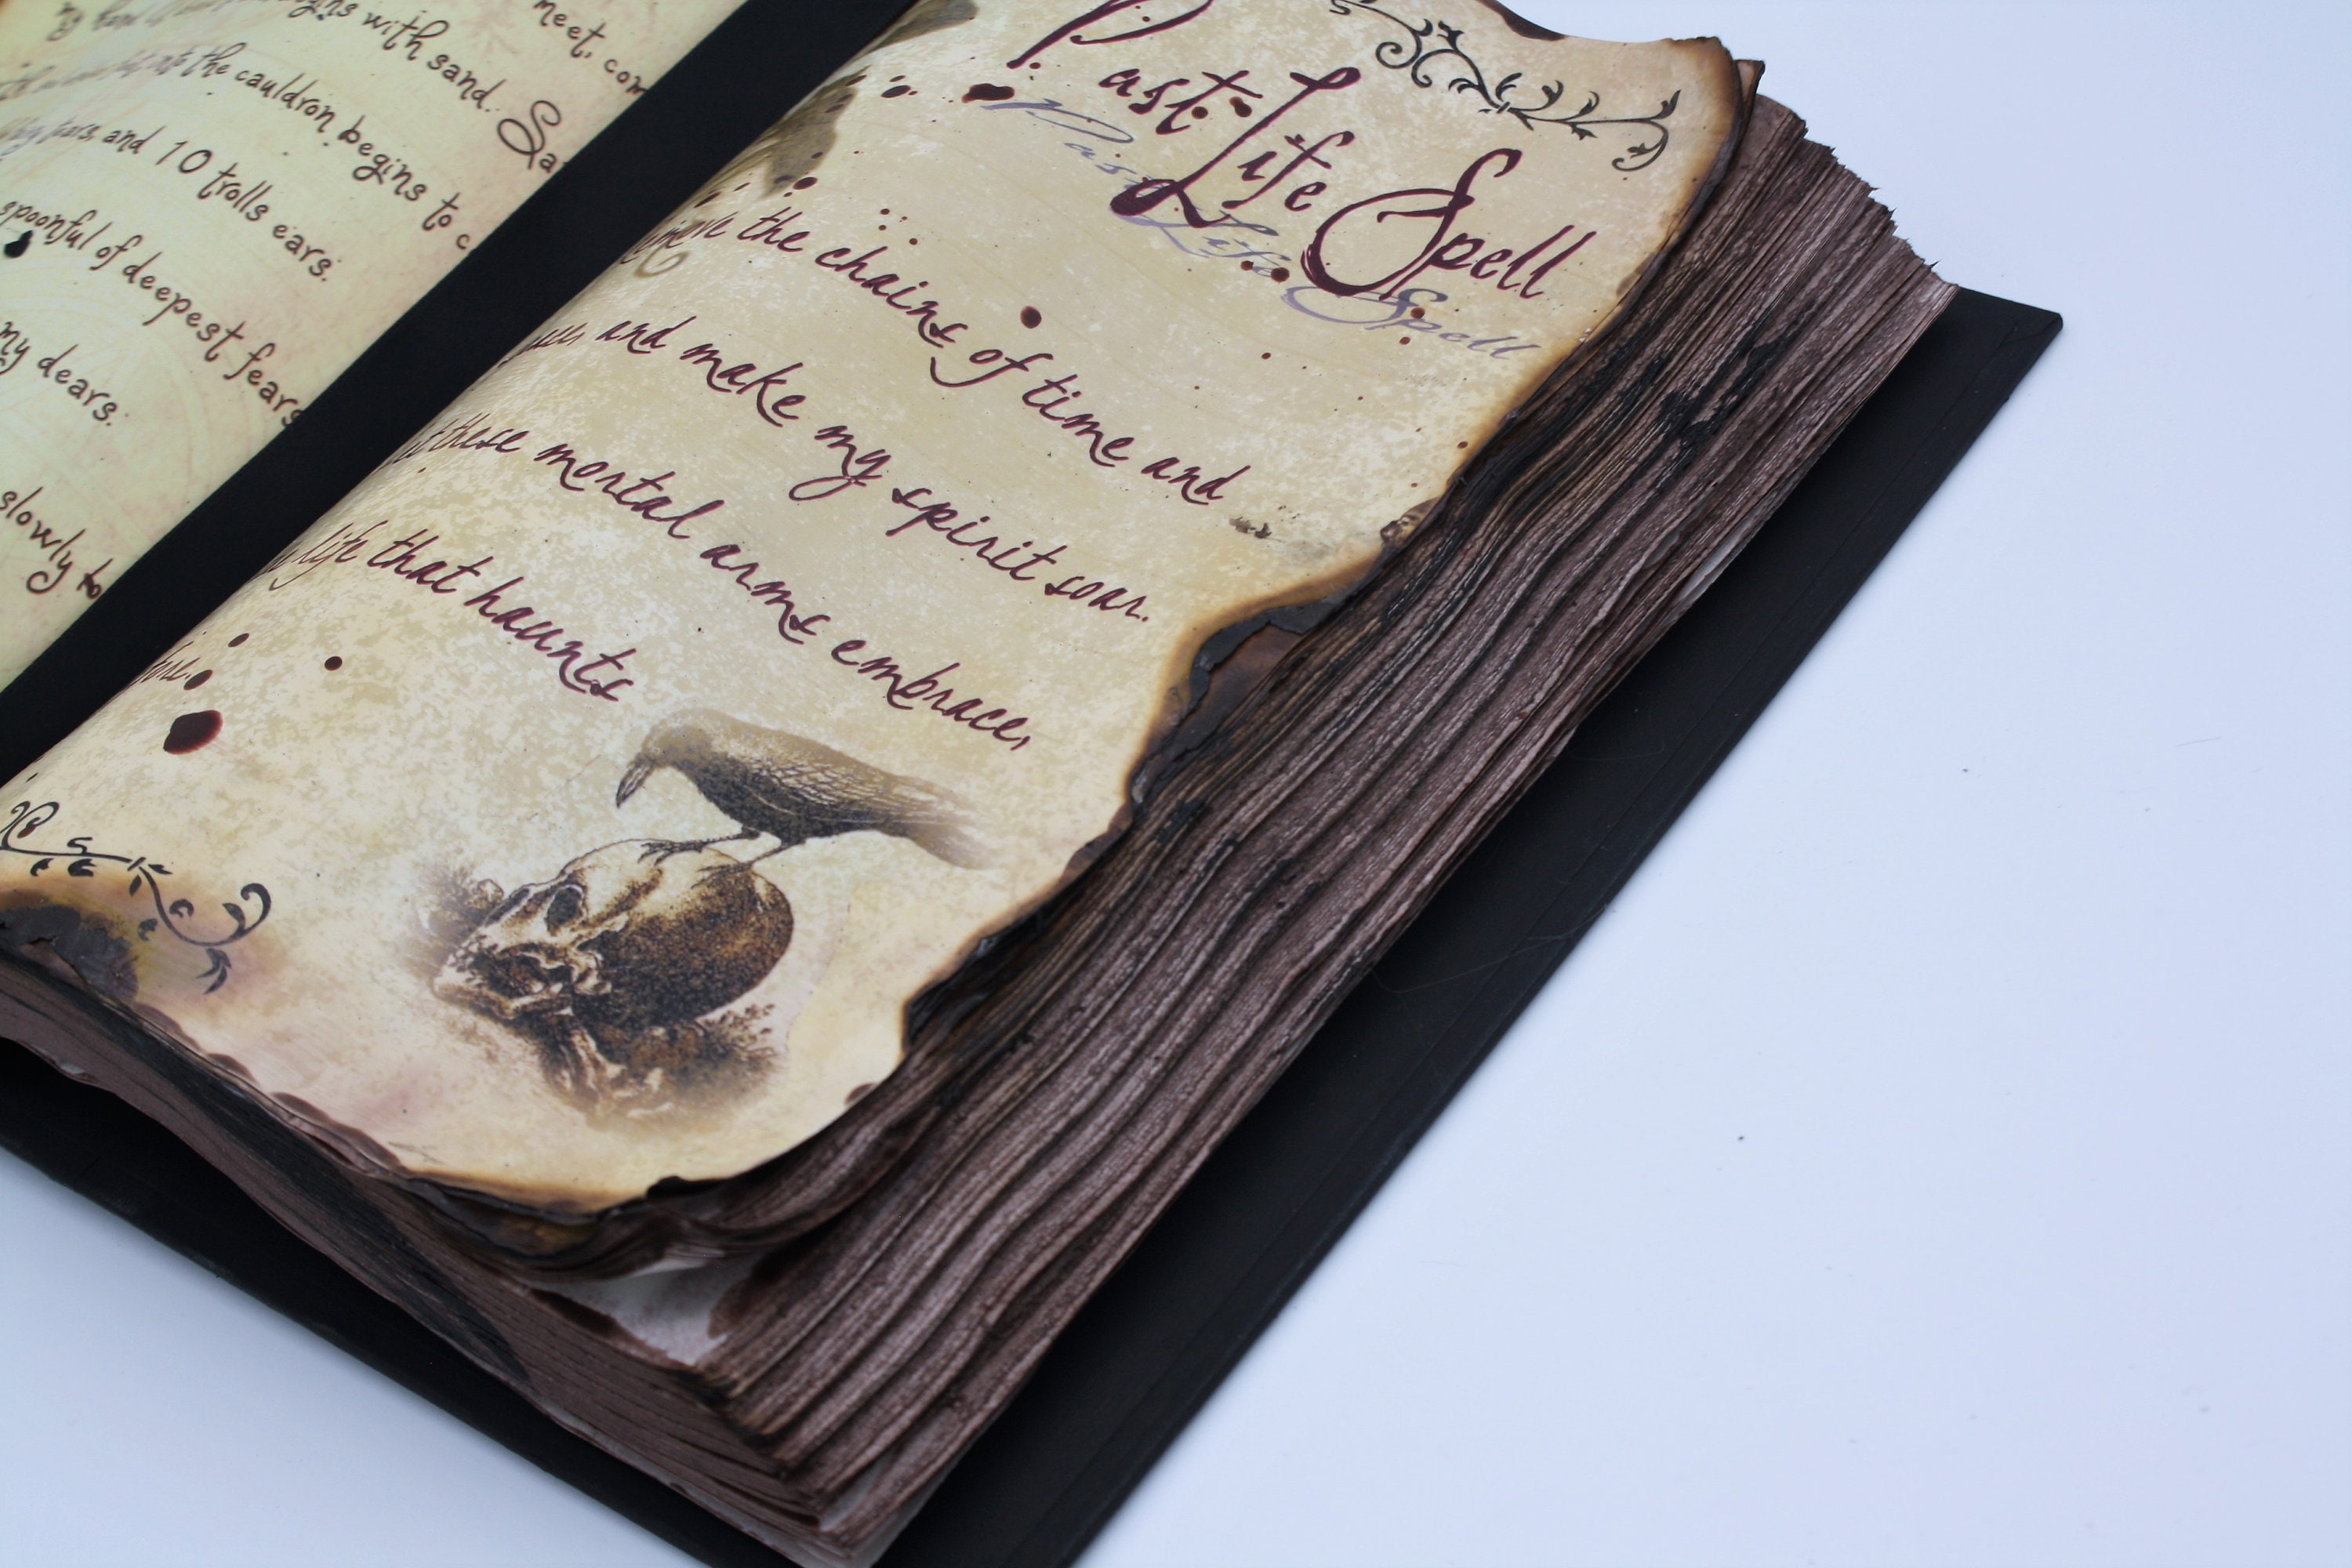 begins with sand.
meet,
the cauldron begins to
and 10 trolls ears.
spoonful of deepest fears
my dears.
slowly to
Past Life Spell
Past Life Spell
the chains of time and
and make my spirit soar.
these mortal arms embrace,
life that haunts